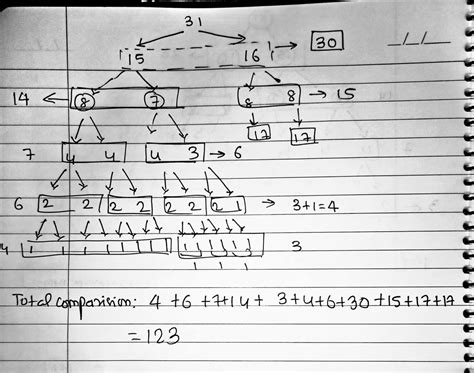 31
15 16 → 30
14 ← 8 7 8 8 → 15
17 17
7 4 4 4 3 → 6
6 2 2 2 2 2 2 2 1 → 3+1=4
4 1 1 1 1 1 1 1 1 1 1 1 1 1 3
1 1 1
Total comparision: 4 +6 +7+14+ 3+4+6+30+15+17+17
=123